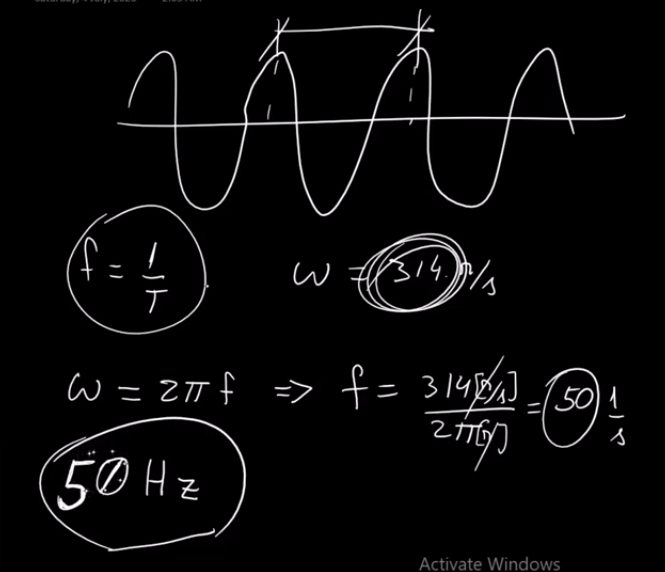 f = 1/T
ω = 314 r/s
ω = 2πf => f = 314[r/s] / 2π[r] = 50 1/s
50 Hz
Activate Windows